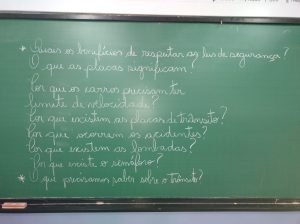 * Quais os benefícios de respeitar as leis de segurança?
O que as placas significam?
Por que os carros precisam ter
limite de velocidade?
Por que existem as placas d trânsito?
Por que ocorrem os acidentes?
Por que existem as lombadas?
Por que existe o semáforo?
* O que precisamos saber sobre o trânsito?